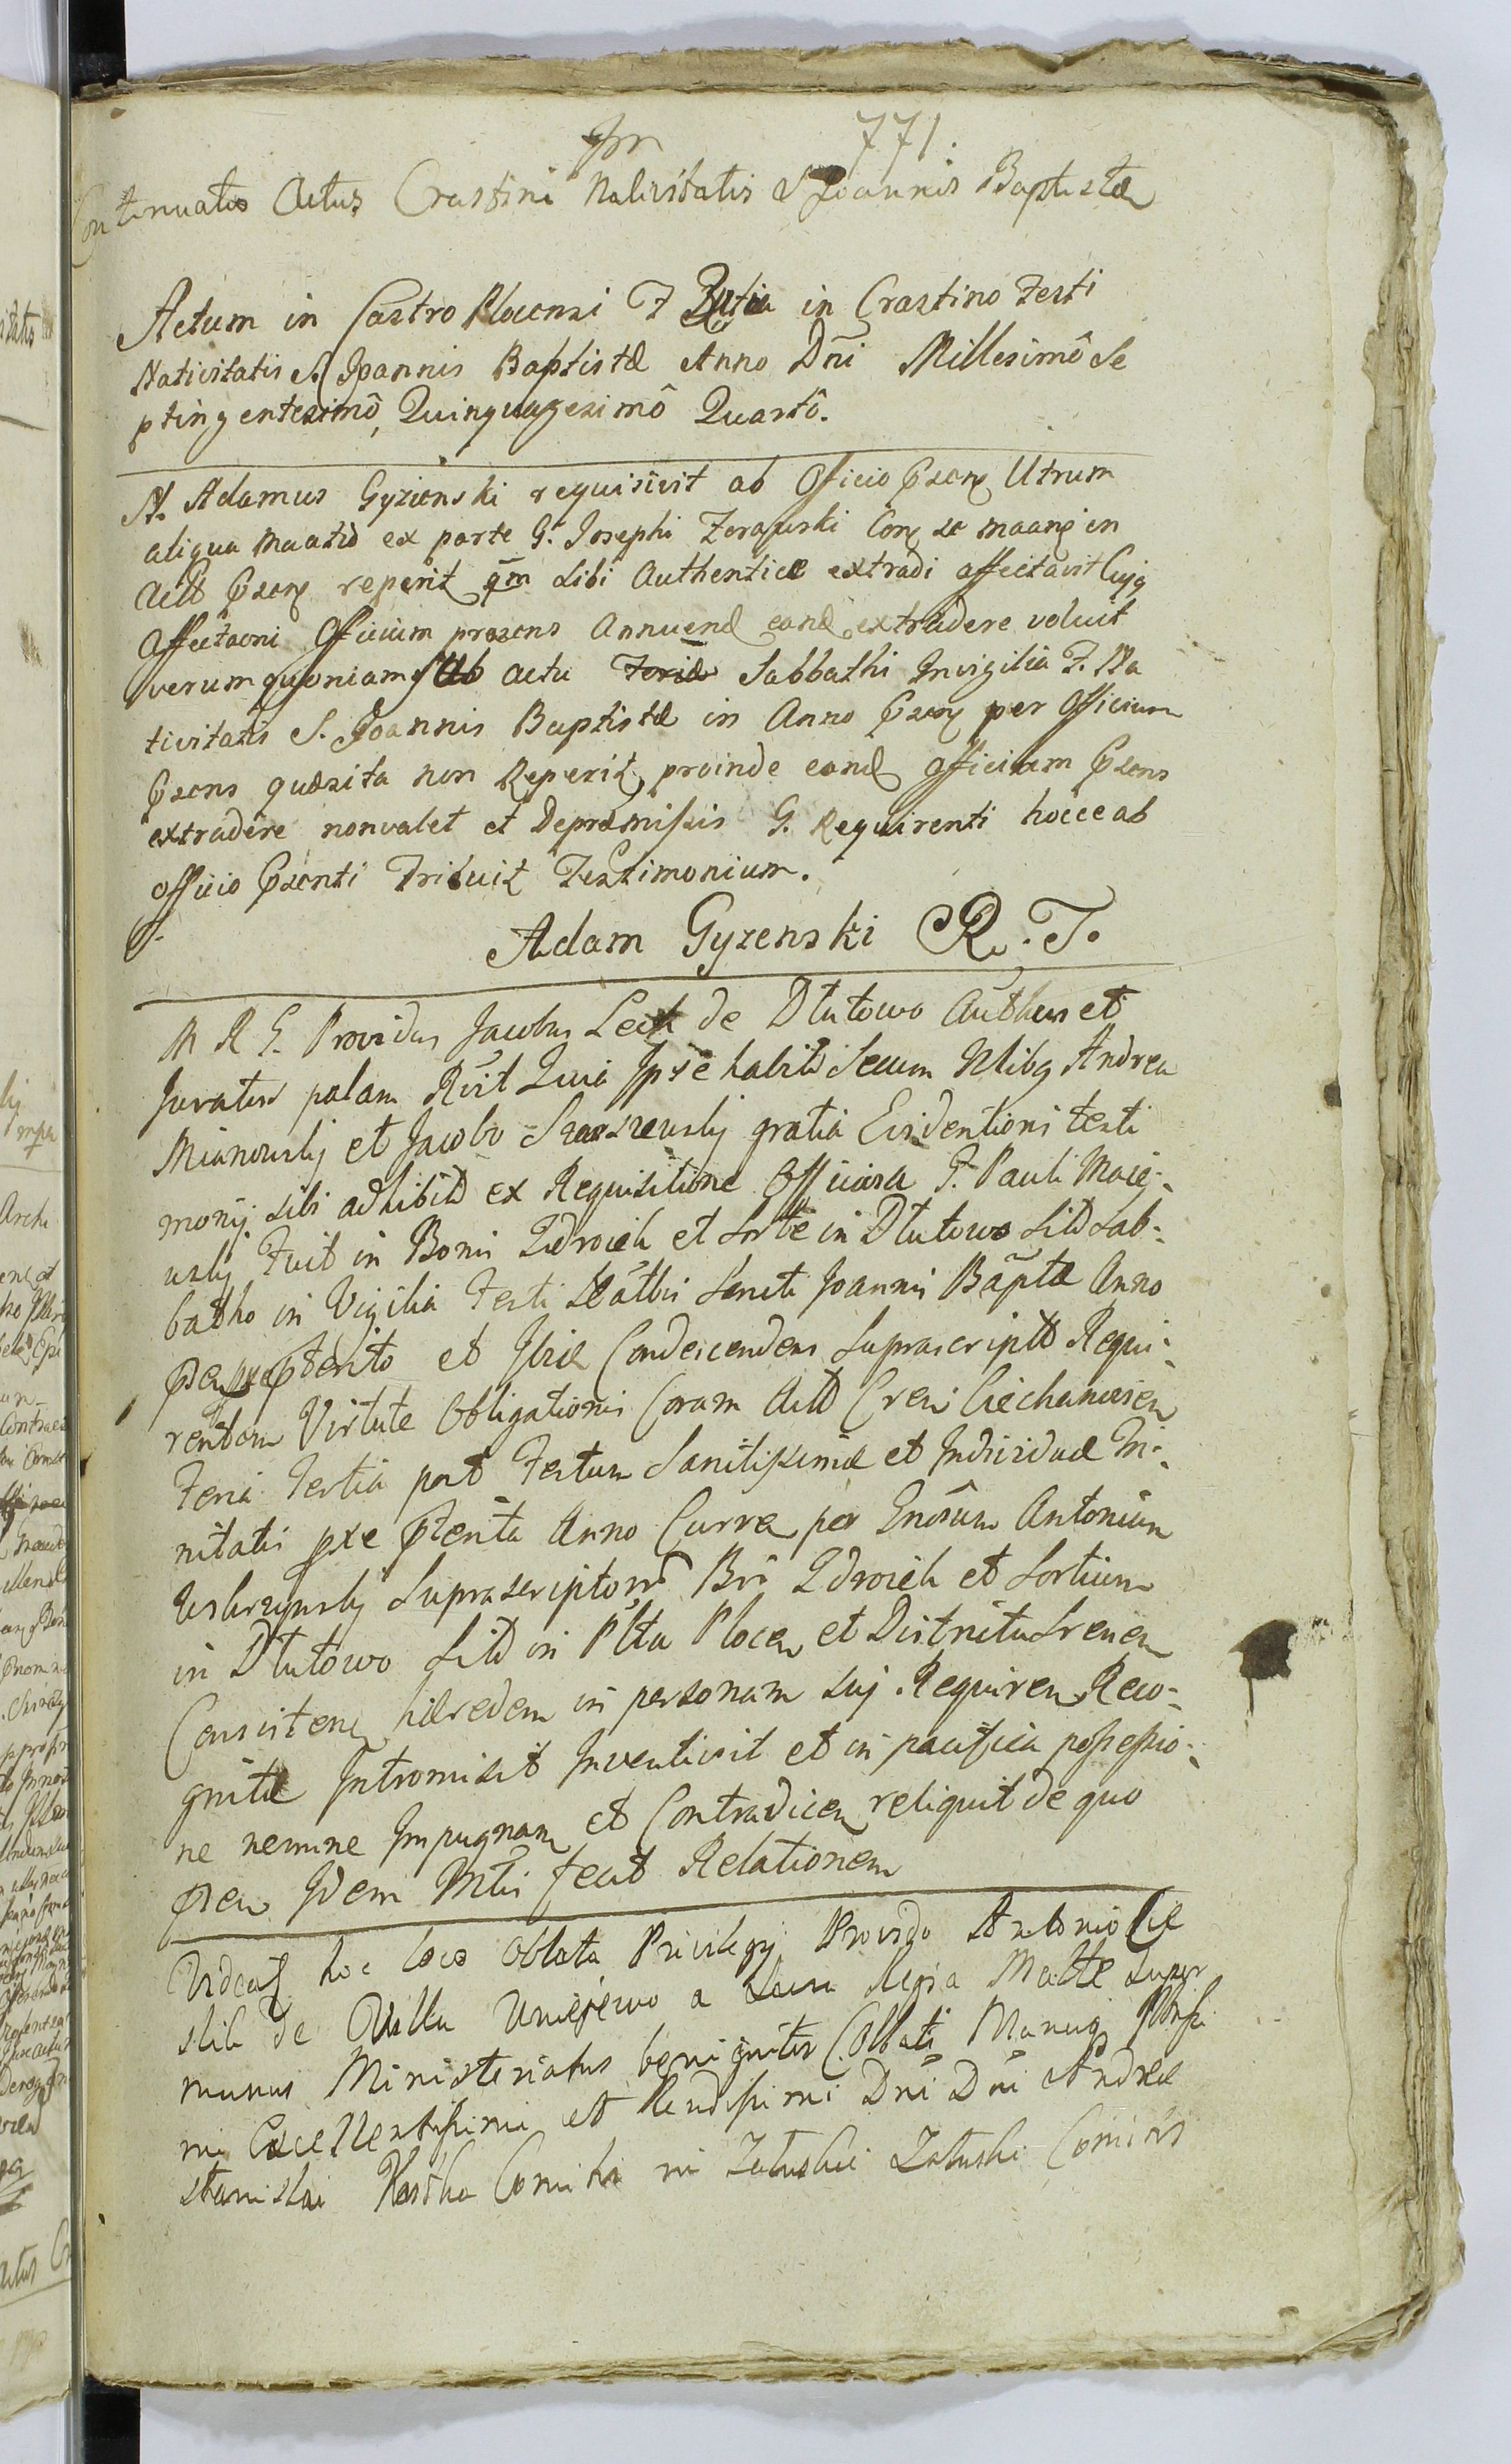 771.
Continuatio Actus Crastini Nativitatis S Joannis Baptistæ
Actum in Castro Plocensi F in Crastino Festi
Nativitatis S. Joannis Baptistæ Anno Dñi Millesimô Se
ptingentesimô, Quinquagesimô Quartô.
N. Adamus Gyzenski requisivit ab Officio Psen Utrum
aliqua ex parte G. Josephi in
Act Psen reperit qm sibi Authenticæ extradi affectavit Cujq
Affectaoni Officium præsens Annuend eand extradere voluit
verum quoniam Sub actu Feriæ Sabbathi Invigilia F. Na
tivitatis S. Joannis Baptistæ in Anno Psen per Officium
Psens quæsita non Reperit, proinde eand Officium Psens
extradere nonvalet et Depræmissis G. Requirenti hocce ab
officio Psenti Tribuit Testimonium.
Adam Gyzenski R. T.
M R G. Providus Jacobus de Dłutowo Authen et
Juratus palam Rvit Quia Ipse habitis Secum Nlibq Andrea
Mianowskj et Jacobo gratia Evidentioris testi
monij sibi adhibitis ex Requisitione Officiosa G. Pauli
Fuit in Bonis Zdroich et Sorte in Dłutowo Sitis Sab-
batho in Vigilia Festi Natlis Sancti Joannis Bāptæ Anno
et Ibiæ Condescendens Suprascriptis Requi-
rentem Virtute Obligationis Coram Actis Cren Ciechanovien
Feria Tertia post Festum Sanctissimæ et Individuæ Tri-
nitatis pxe Pterita Anno Curre per Gnosum Antonium
Suprascriptorum Bri Zdroich et Sortium
in Dłutowo Sitis in Pltu Plocen et Districtu Srenen
Consisten hæredem in personam suj Requiren Reco-
gnitæ Intromisit Inventivit et in pacifica possessio-
ne nemine Impugnan et Contradicen reliquit de quo
Psen Idem Mtris fecit Relationem
Videat hoc loco Oblata Privilegij Provido Antonio Cie
slik de Villa Unieiewo a Sacra Regia Matte Super
munus Ministeriatus benigniter Collati Manuq Illrissi
mi Excellentissimi et Rendissimi Dni Dni Andreæ
Stanislai Kostka Comitis in Załuskie Załuski Comitis